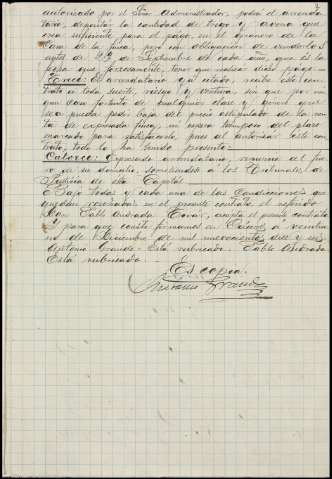 autorizado por el Sr. Administrador, podrá el arrenda-
tario, depositar la cantidad de trigo y avena que
sea suficiente para el pago, en el granero de la
Casa de la finca, pero con obligación de venderlos
antes del de Septiembre de cada año, que es la
fecha que forzosamente, tiene que realizar dicho pago.
Trece: El arrendatario ya citado, recibe este con-
trato á todo suerte, riesgo y ventura sin que por nin-
gun caso fortuito de cualquiera clase y género que
sea pueda pedir baja del precio estipulado de la ren-
ta de expresada finca, ni espera tampoco del plazo
marcado para satisfacerla, pues al autorizar este con-
trato, todo lo ha tenido presente.
Catorce: Expresado arrendatario, renuncia al fue-
ro de su domicilio, sometiendose á los Tribunales de
Justicia de esta Capital.
Bajo todas y cada una de las Condiciones que
quedan reseñadas en el presente contrato el referido
Don Pablo Andrada acepta el presente contrato
y para que conste firmamos en Cáceres á veintiu-
no de Diciembre de mil novecientos diez y seis
Antonio Grande. Está rubricado. Pablo Andrada
Está rubricado.
Es copia.
Antonio Grande